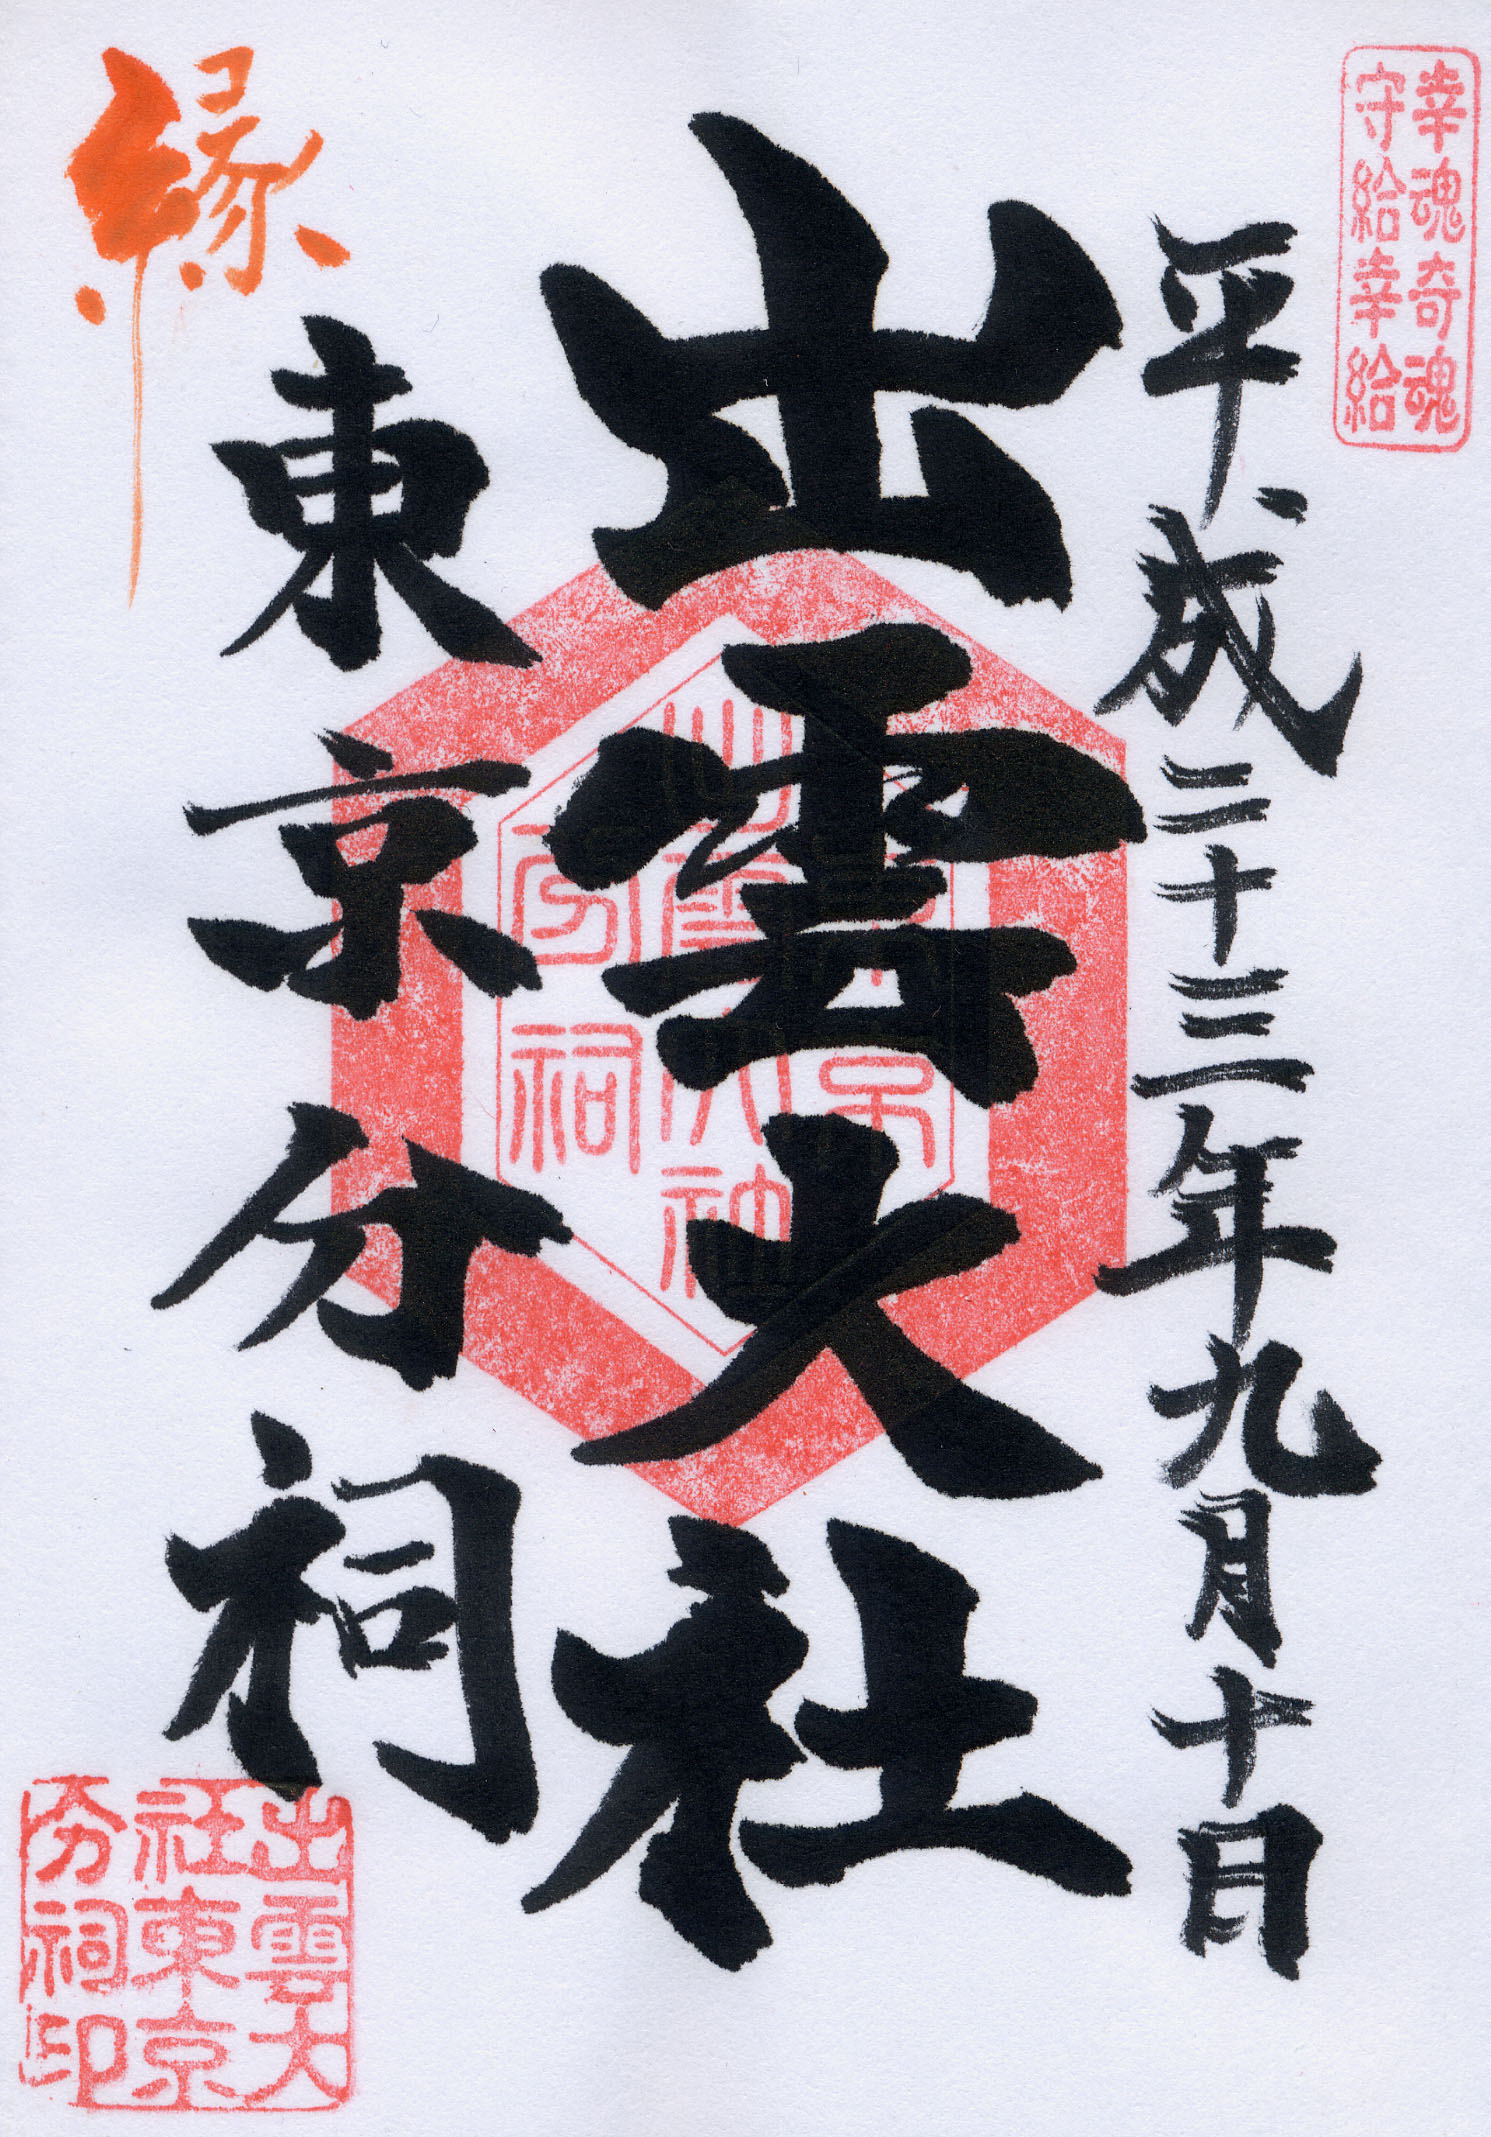 幸魂奇魂
守給幸給
平成二十三年九月十日
出雲大社
東京分祠
縁
出雲大
社東京
分祠印